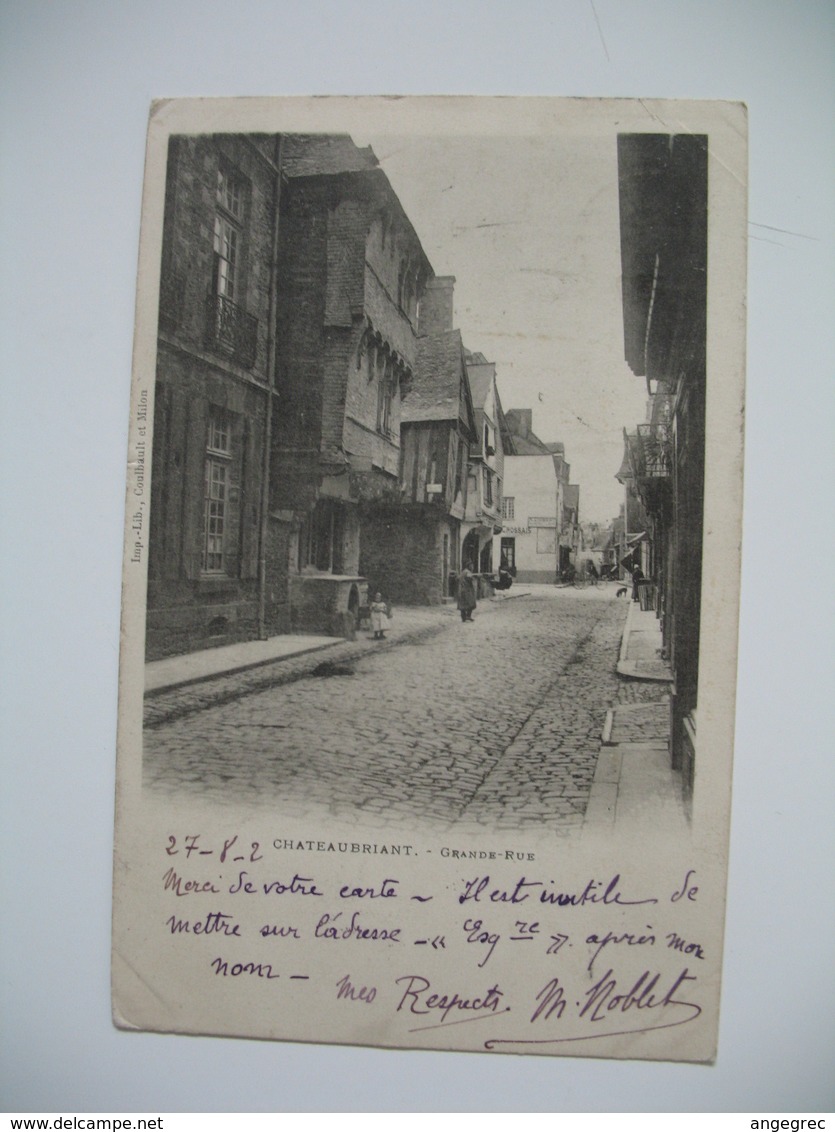 CROSSAIS
Imp.-Lib., Coulbault et Milon
27-8-2 CHATEAUBRIANT. - GRANDE-RUE
Merci de votre carte - Il est inutile de
mettre sur l'adresse - « Esqre » après mon
nom -
mes Respects. M. Noblet
www.delcampe.net
angegrec